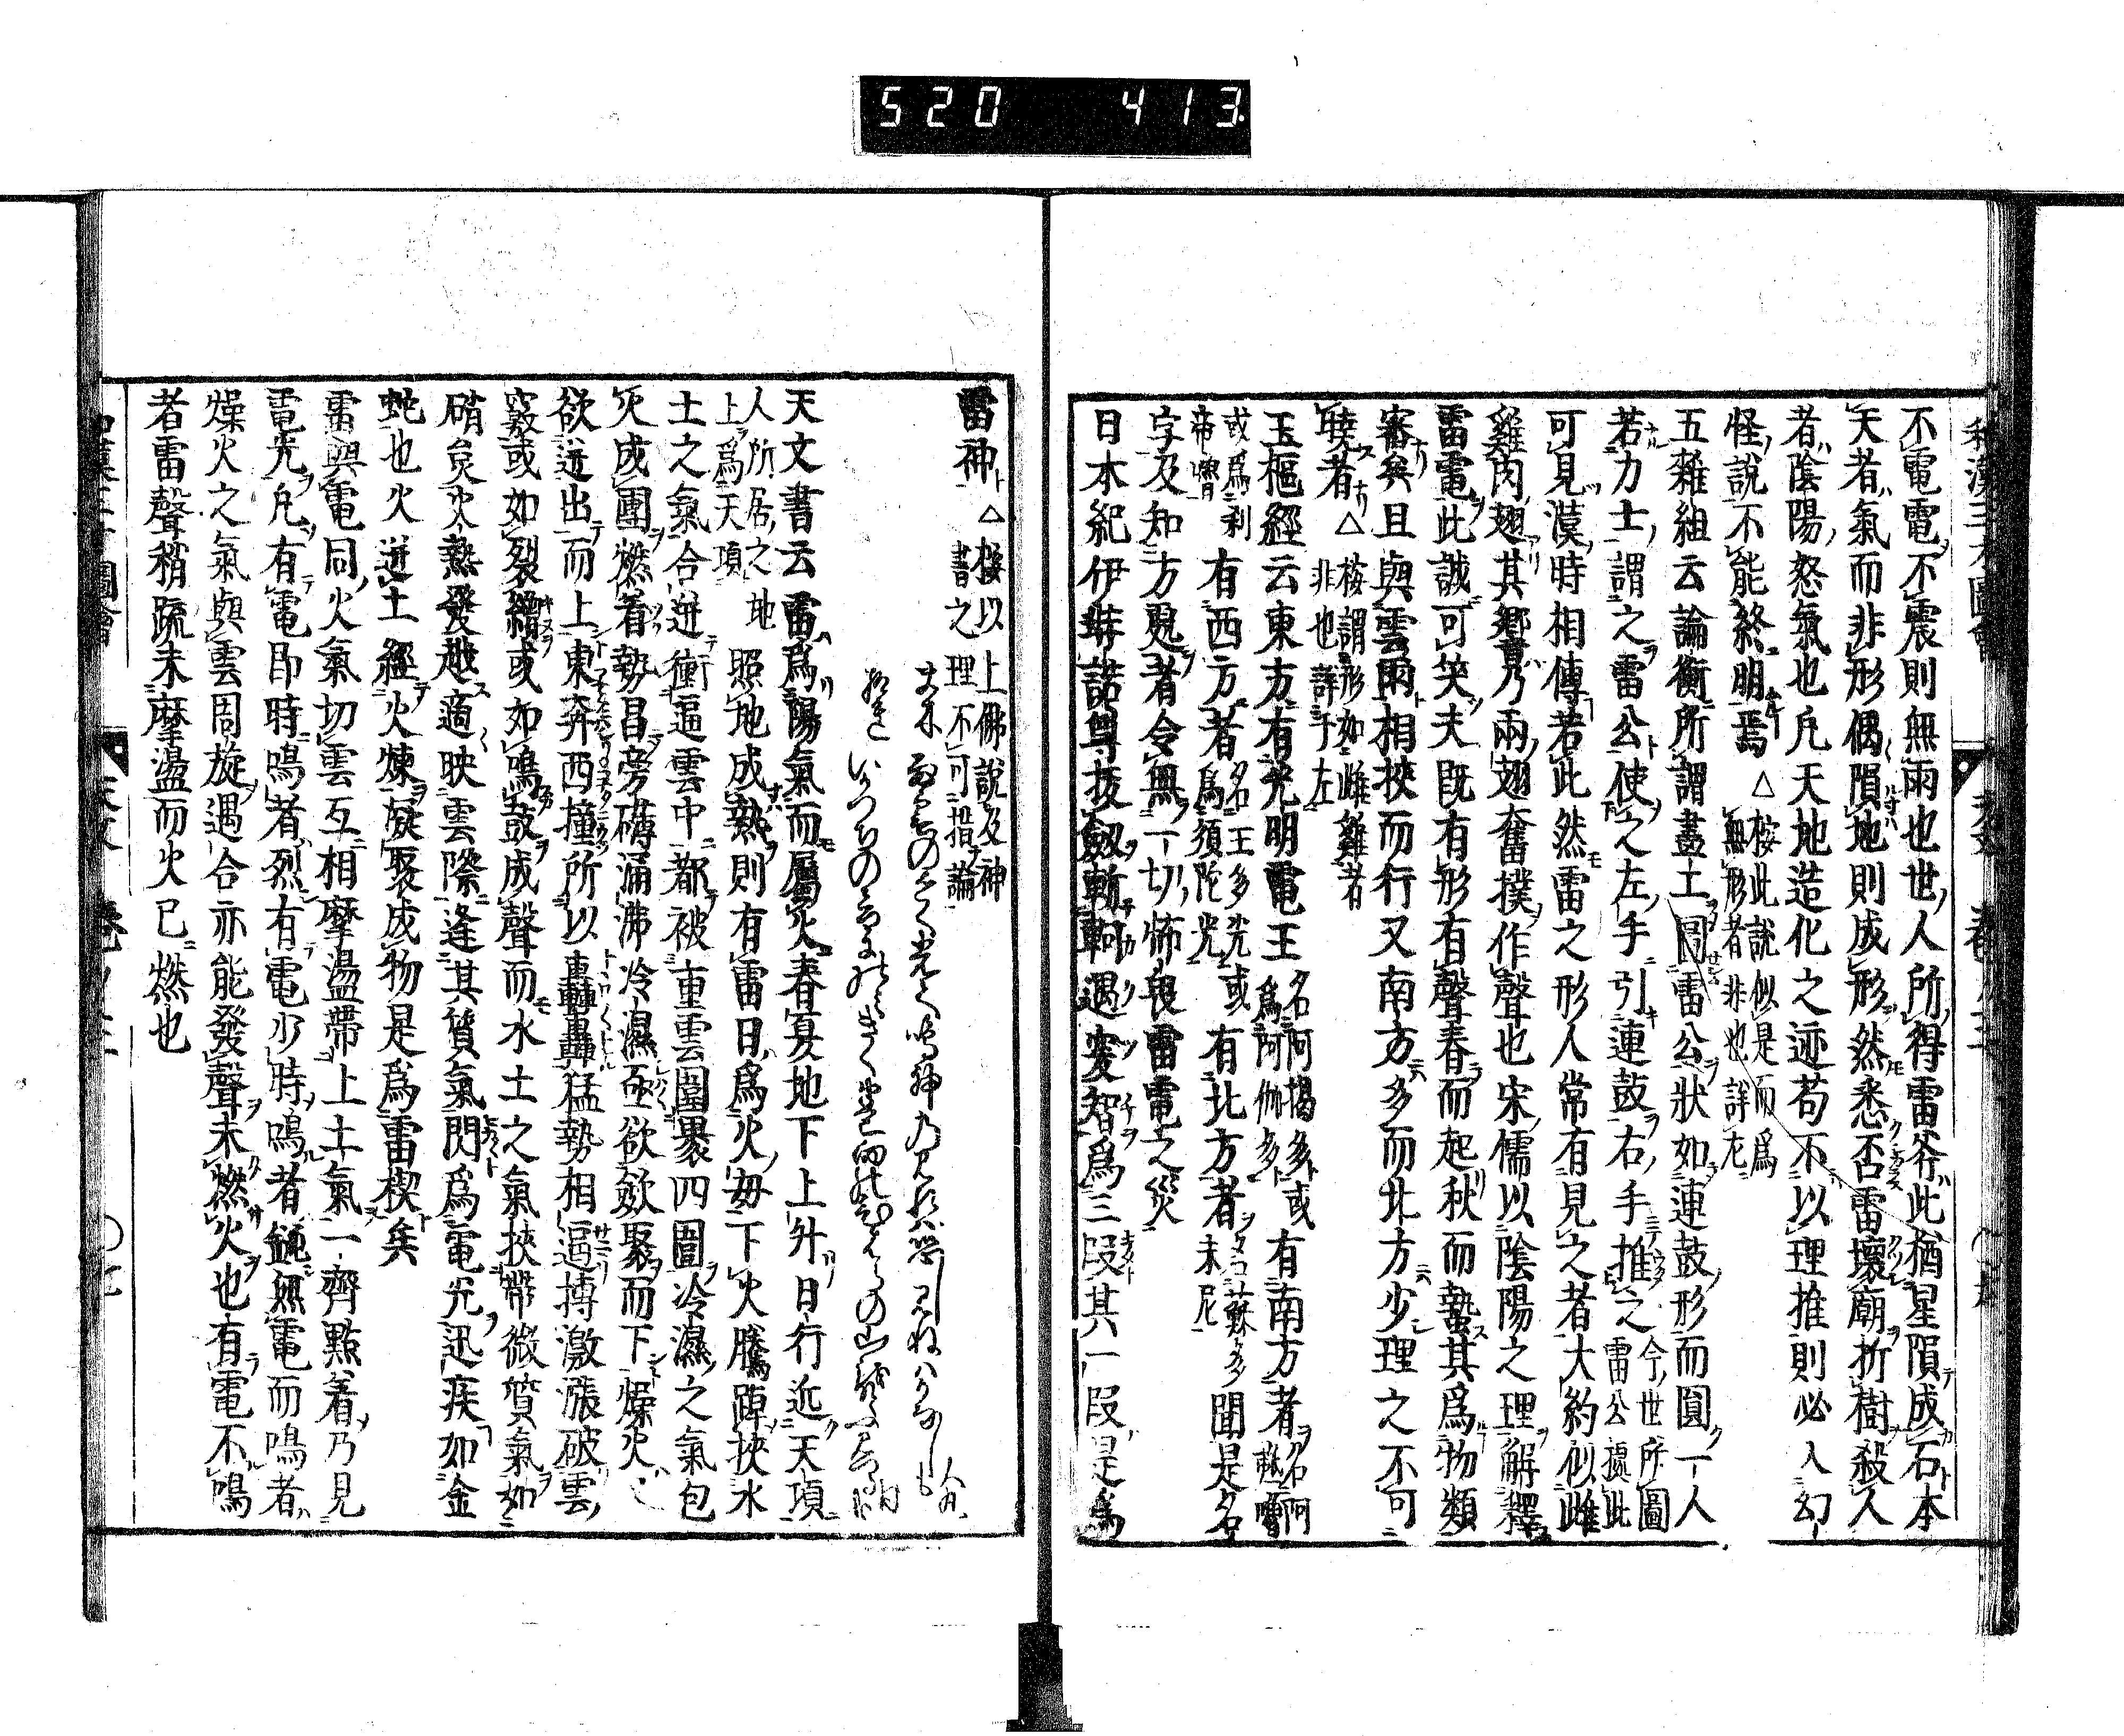 520 413
和漢三才圖會
不電電不震則無雨也世人所得雷斧此猶星隕成石本
天者氣而非形偶隕地則成形然悉否雷壞廟折樹殺人
者陰陽怒氣也凡天地造化之迹苟不以理推則必入幻
怪說不能終明焉 △按此說似是而爲
無形者非也詳左
五雜組云論衡所謂畫土圖雷公狀如連鼓形而圓一人
若力士謂之雷公使之左手引連鼓右手推之 今世所圖
雷公據此
可見漢時相傳若此然雷之形人常有見之者大約似雌
雞肉翅其響乃兩翅奮撲作聲也宋儒以陰陽之理解釋
雷電此誠可笑夫既有形有聲春而起秋而蟄其爲物類
審矣且與雲雨相挾而行又南方多而北方少理之不可
曉者 △按謂形如雌雞者
非也詳于左
玉樞經云東方有光明電王 名阿揭多或
爲阿伽多 有南方者 名阿
蘇嚕
或爲利
帝嚕 有西方者 名王多光或
爲須陀光 有北方者 名蘇多
末尼 聞是名
字及知方處者令無一切怖畏雷電之災
日本紀伊弉諾尊拔劔斬軻遇突智爲三段其一段是爲
雷神 △按以上佛說及神
書之理不可措論
天文書云雷爲陽氣而屬火春夏地下上升日行近天頂
人所居之地
上爲天項 照地成熱則有雷日爲火毋下火騰踔挾水
土之氣合迸衝逼雲中都被重雲圍裹四圍冷濕之氣包
火成團燃着勢昌旁礴涌沸冷濕亟欲歛聚而下燥火
欲迸出而上東奔西撞所以轟轟猛勢相逼搏激漲破雲
竅或如裂繒或如鳴鼓成聲而水土之氣挾帶微質氣如
硝炱火熱發越適映雲際逢其質氣閃爲電光迅疾如金
蛇也火迸土經火煉凝聚成物是爲雷楔矣
雷與電同火氣切雲互相摩盪帶上土氣一齊點着乃見
電光凡有電卽時鳴者烈有電少時鳴者鈍無電而鳴者
燥火之氣與雲周旋遇合亦能發聲未燃火也有電不鳴
者雷聲稍疏未摩盪而火已燃也